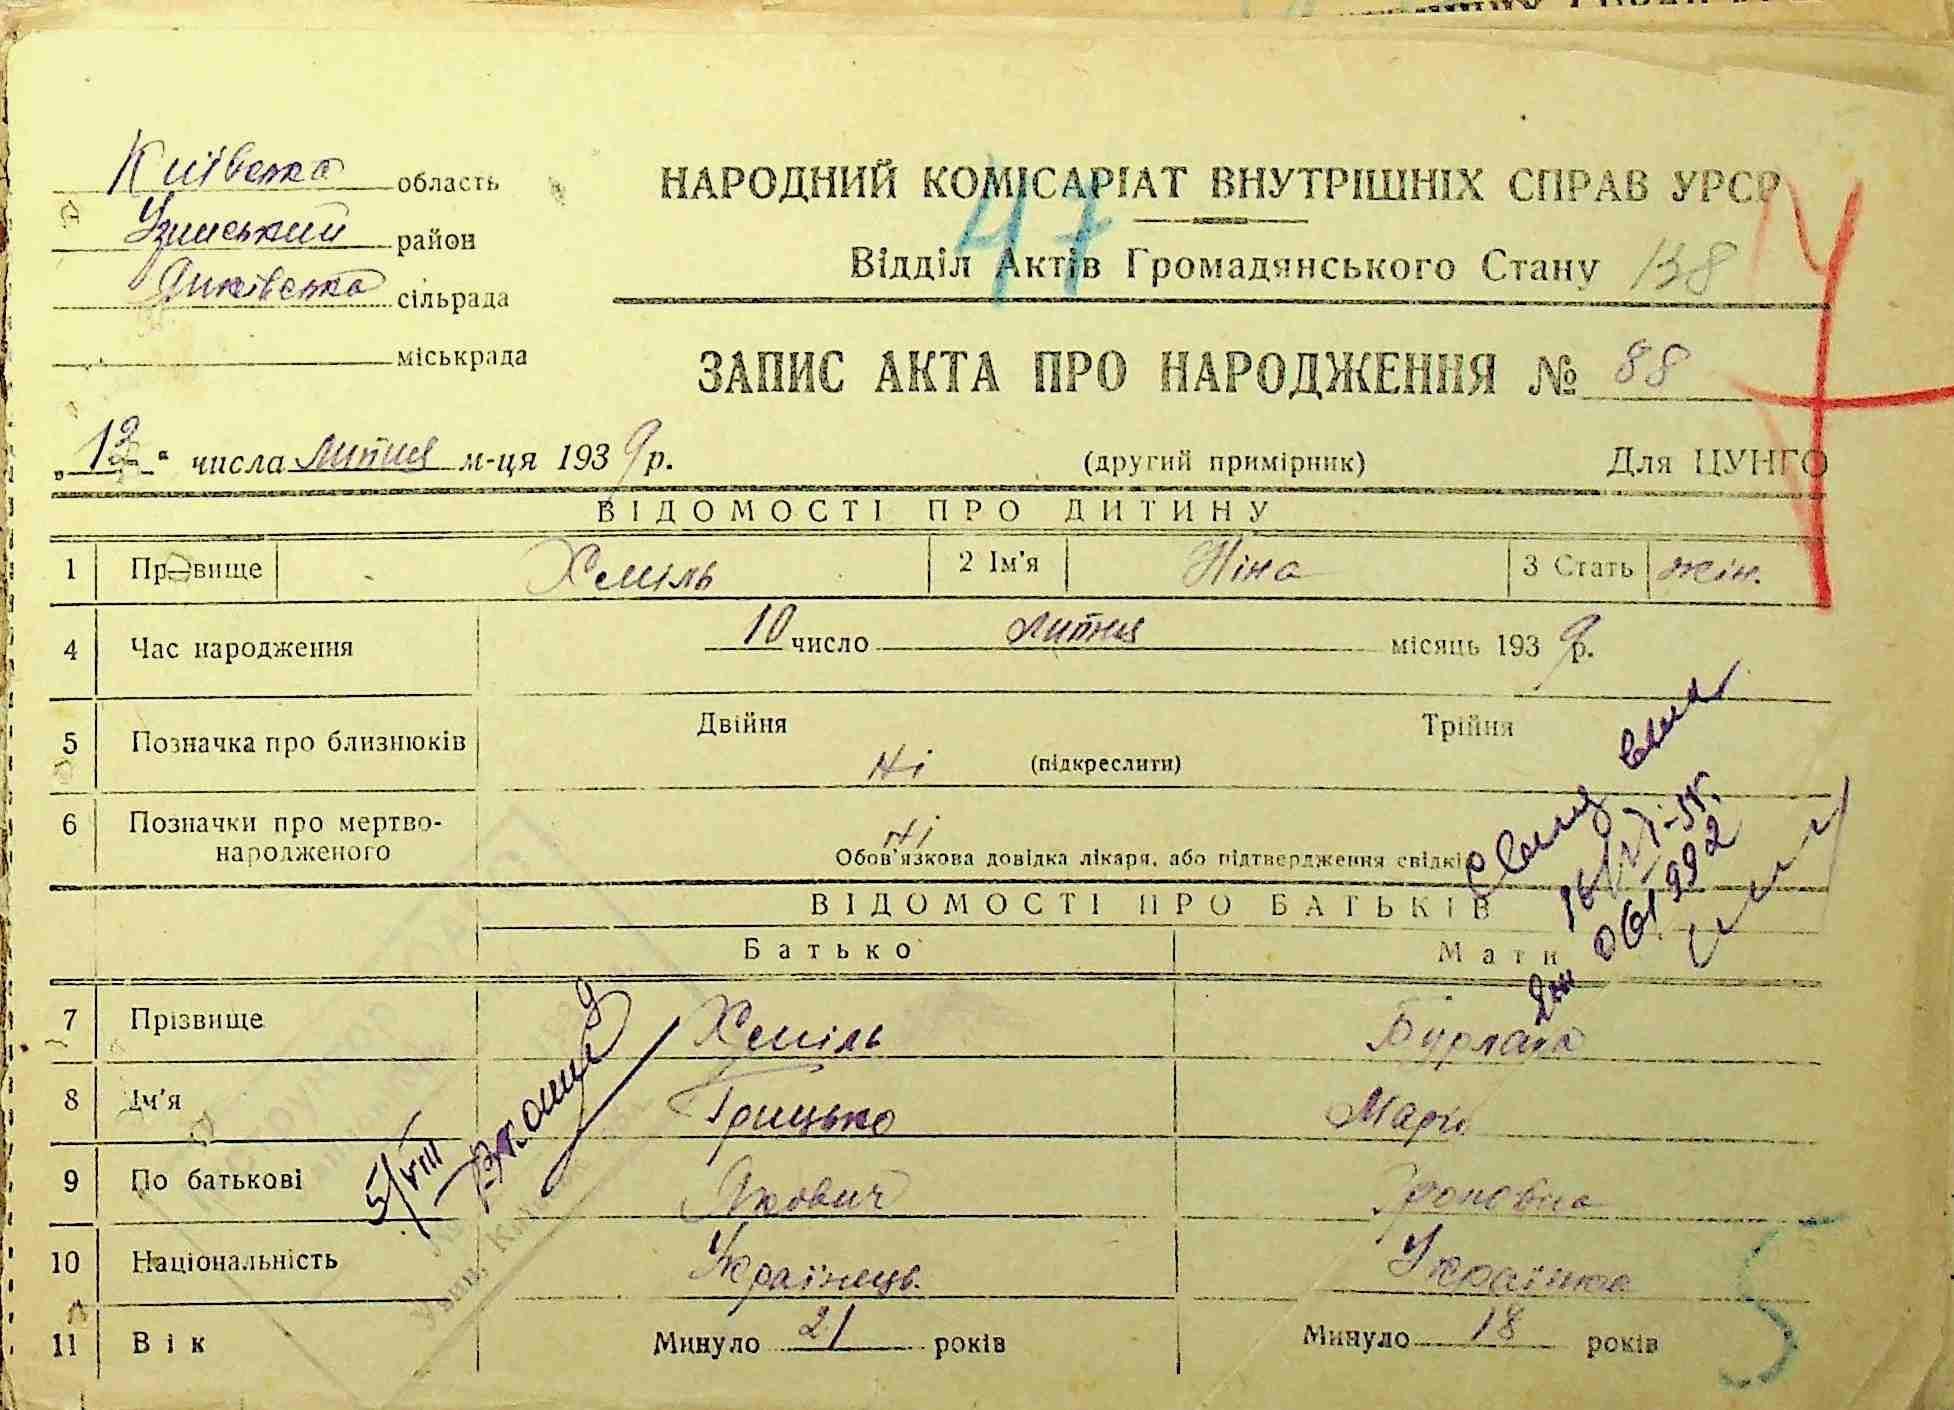 Київська область
Узинський район
Яцківська сільрада
міськрада
НАРОДНИЙ КОМІСАРІАТ ВНУТРІШНІХ СПРАВ УРСР
47
Відділ Актів Громадянського Стану 138
ЗАПИС АКТА ПРО НАРОДЖЕННЯ № 88
„13“ числа липня м-ця 1939 р.
(другий примірник) Для ЦУНГО
ВІДОМОСТІ ПРО ДИТИНУ
1 Прізвище Хеміль 2 Ім'я Ніна 3 Стать жін.
4 Час народження 10 число липня місяць 1939 р.
5 Позначка про близнюків Двійня Трійня
ні (підкреслити)
6 Позначки про мертво-
народженого ні
Обов'язкова довідка лікаря, або підтвердження свідків
ВІДОМОСТІ ПРО БАТЬКІВ
Батько Мати
7 Прізвище Хеміль Бурлака
8 Ім'я Грицько Марія
9 По батькові Якович
10 Національність Українець Українка
11 Вік Минуло 21 років Минуло 18 років
5/VIII
5